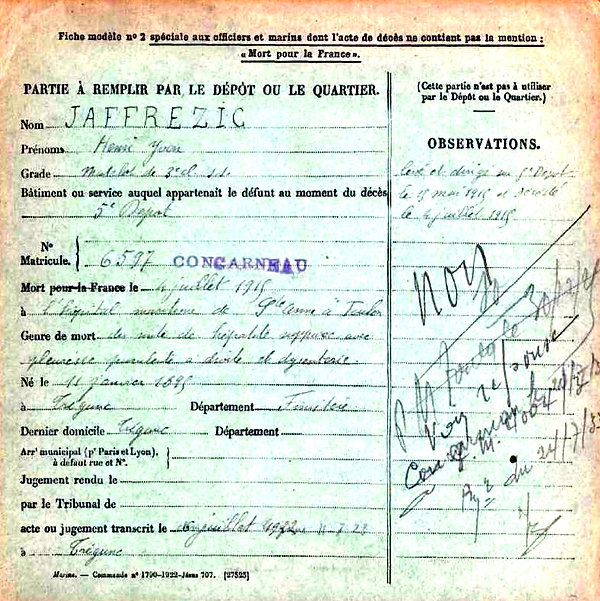 Fiche modèle nº 2 spéciale aux officiers et marins dont l'acte de décès ne contient pas la mention :
« Mort pour la France ».
PARTIE À REMPLIR PAR LE DÉPÔT OU LE QUARTIER.
Nom JAFFREZIC
Prénoms Henri Yvon
Grade Matelot de 3e cl. s.s.
Bâtiment ou service auquel appartenait le défunt au moment du décès
5e Depot
Nº Matricule. 6597 CONCARNEAU
Mort pour la France le 4 juillet 1915
à l'hôpital maritime de Ste Anne à Toulon
Genre de mort des suite de hépatite suppurée avec
pleuresie purulente à droite et dysenterie.
Né le 11 janvier 1895
à Trégunc Département Finistère
Dernier domicile Trégunc Département
Arrt municipal (pr Paris et Lyon),
à défaut rue et Nº.
Jugement rendu le
par le Tribunal de
acte ou jugement transcrit le juillet 1922
à Trégunc
Marine. — Commande nº 1790-1922-Jésus 707. [27525]
(Cette partie n'est pas à utiliser
par le Dépôt ou le Quartier.)
OBSERVATIONS.
Levé et dirigé sur 5e Depot
le 15 mai 1915 et décédé
le 4 juillet 1915
non
Voir réponse
du 24/7/